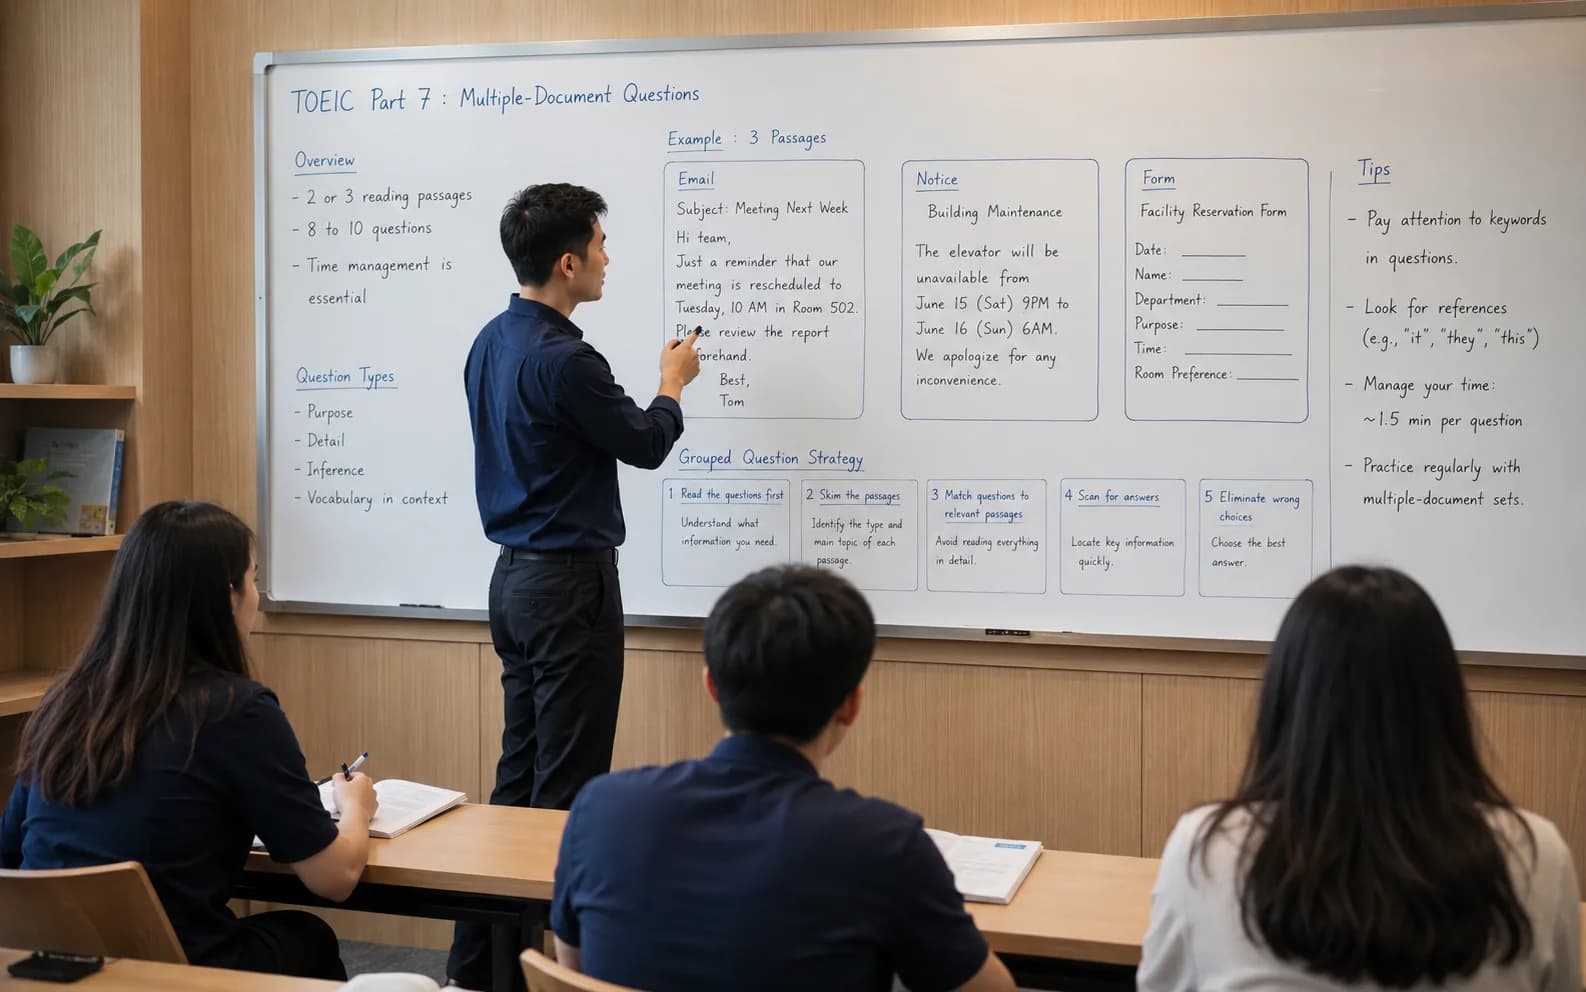 TOEIC Part 7 : Multiple-Document Questions
Overview
- 2 or 3 reading passages
- 8 to 10 questions
- Time management is
essential
Question Types
- Purpose
- Detail
- Inference
- Vocabulary in context
Example : 3 Passages
Email
Subject: Meeting Next Week
Hi team,
Just a reminder that our
meeting is rescheduled to
Tuesday, 10 AM in Room 502.
review the report
forehand.
Best,
Tom
Notice
Building Maintenance
The elevator will be
unavailable from
June 15 (Sat) 9PM to
June 16 (Sun) 6AM.
We apologize for any
inconvenience.
Form
Facility Reservation Form
Date:
Name:
Department:
Purpose:
Time:
Room Preference:
Grouped Question Strategy
1 Read the questions first
Understand what
information you need.
2 Skim the passages
Identify the type and
main topic of each
passage.
3 Match questions to
relevant passages
Avoid reading everything
in detail.
4 Scan for answers
Locate key information
quickly.
5 Eliminate wrong
choices
Choose the best
answer.
Tips
- Pay attention to keywords
in questions.
- Look for references
(e.g., "it", "they", "this")
- Manage your time:
~1.5 min per question
- Practice regularly with
multiple-document sets.